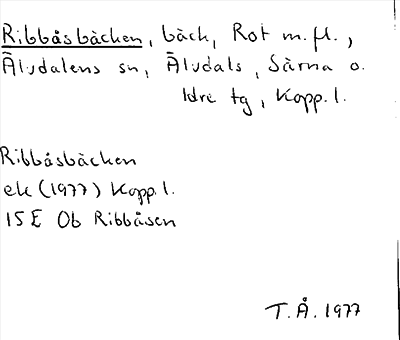 Ribbåsbäcken, bäck, Rot m.fl.,
Älvdalens sn, Älvdals, Särna o.
Idre tg, Kopp. l.
Ribbåsbäcken
ek (1977) Kopp. l.
15 E Ob Ribbåsen
T. Å. 1977